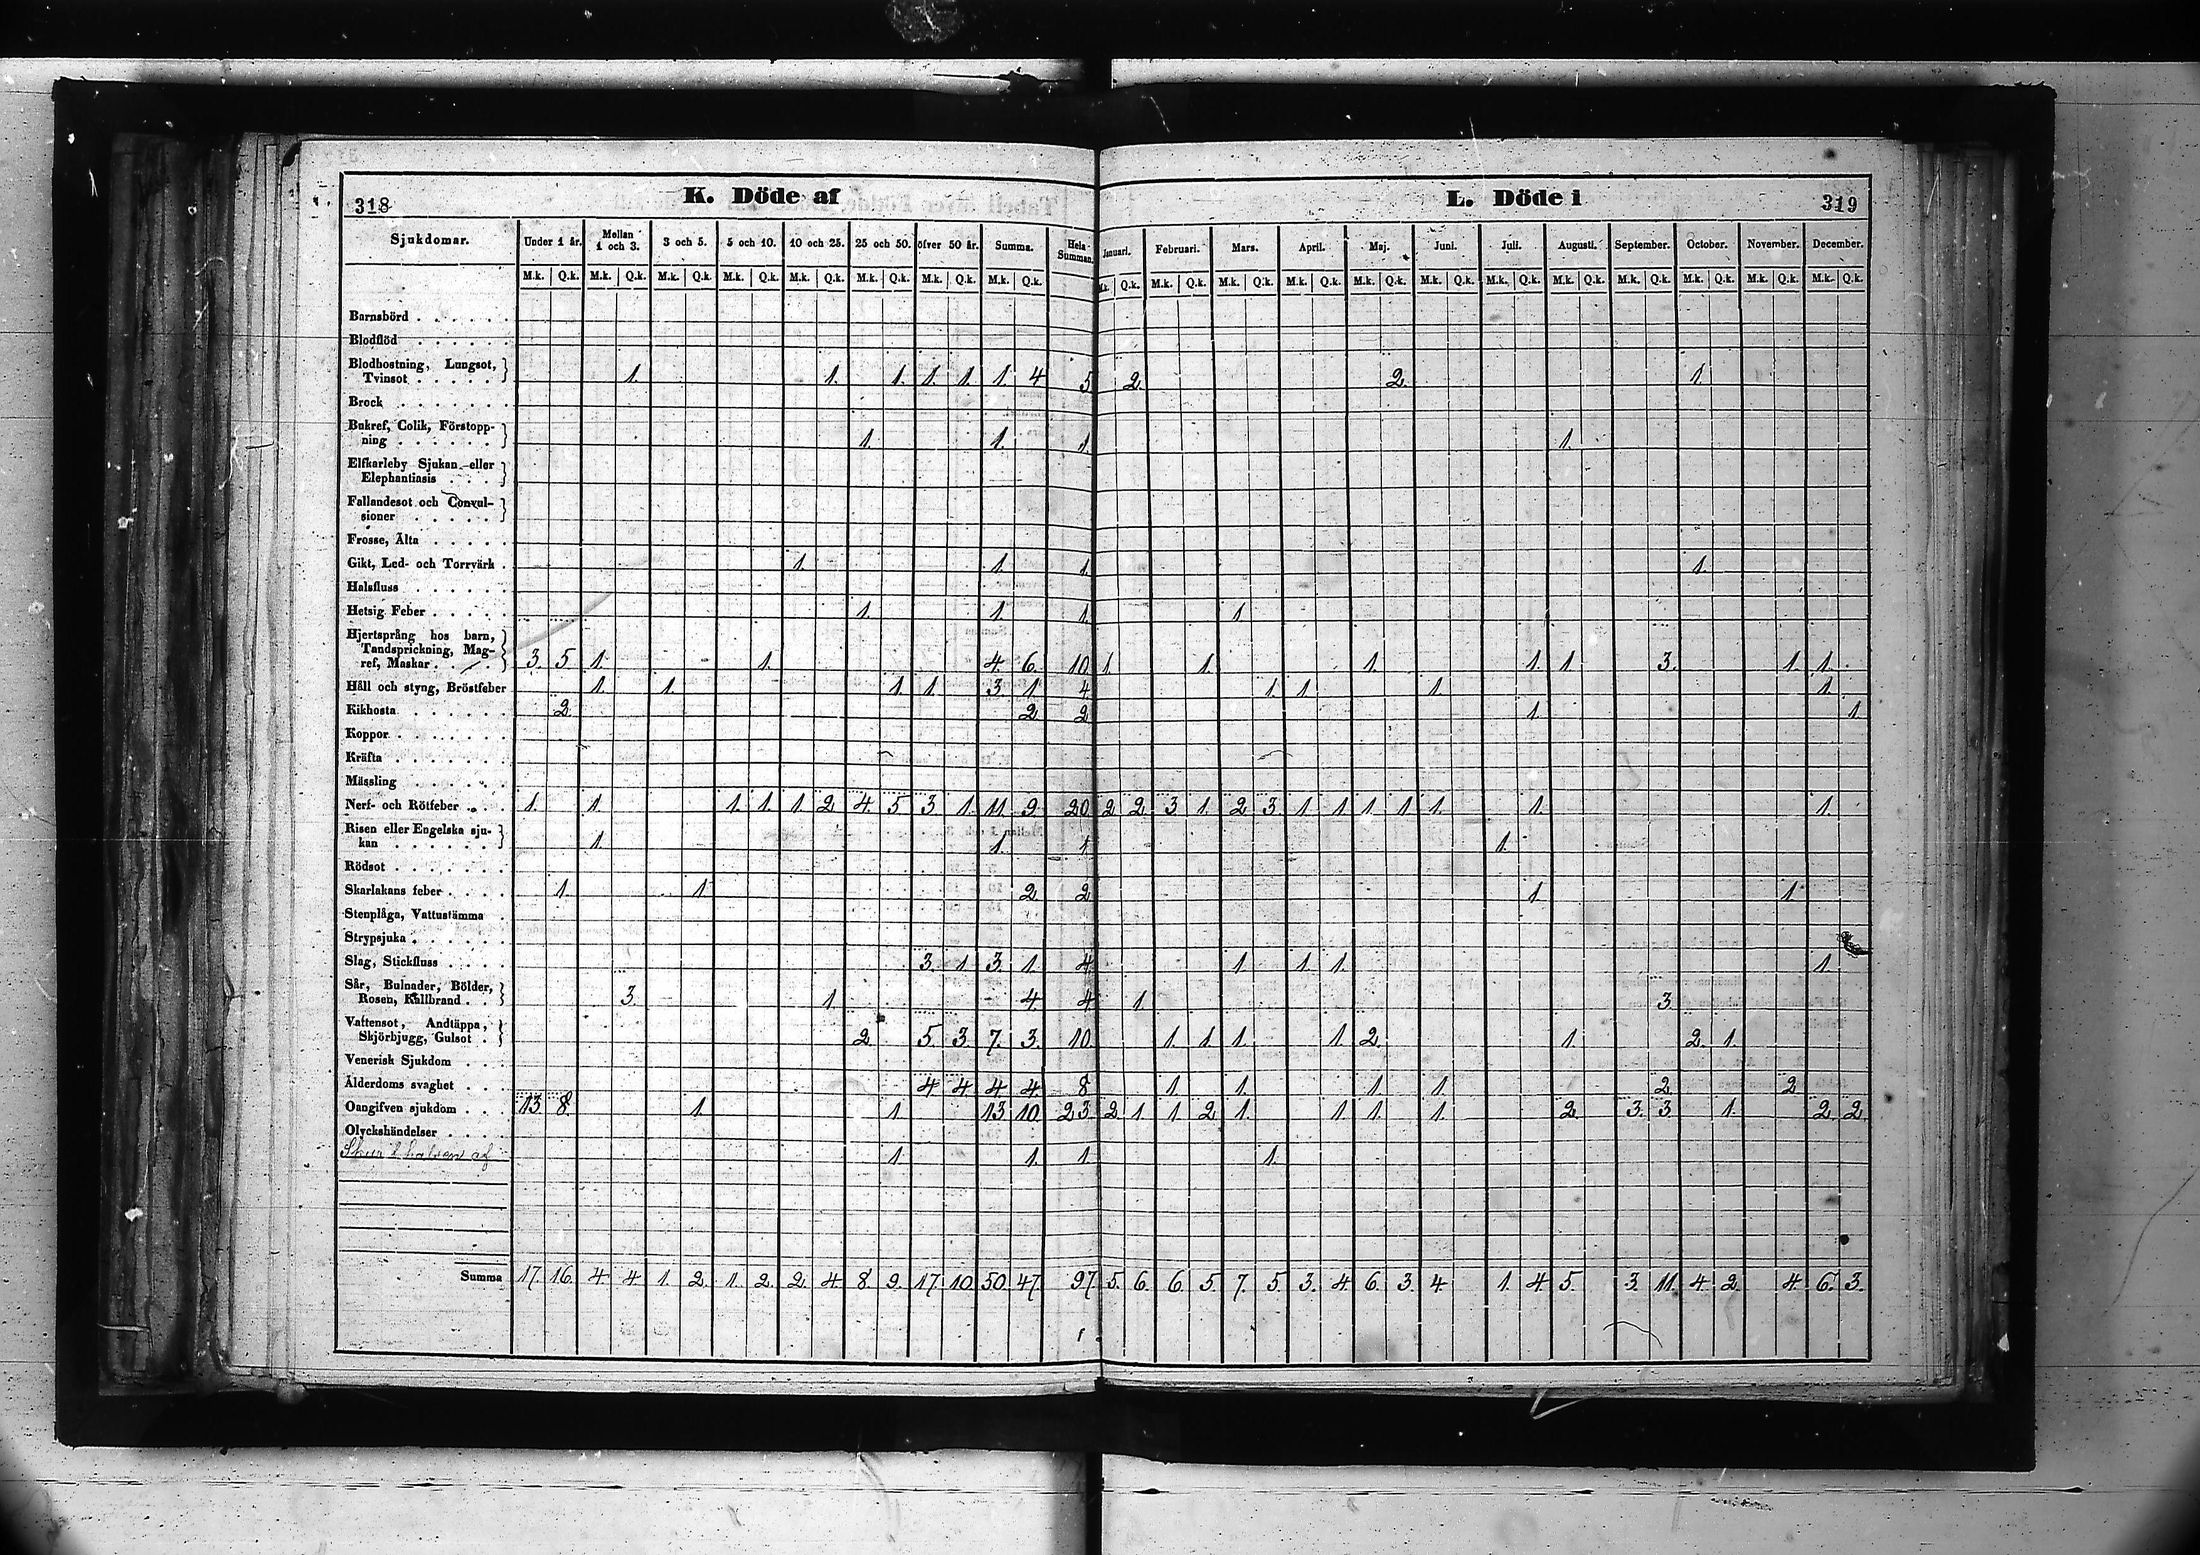 318 K. Döde af
Sjukdomar. Under 1 år. Mellan 1 och 3. 3 och 5. 5 och 10. 10 och 25. 25 och 50. öfver 50 år. Summa. Hela Summan.
M.k. Q.k. M.k. Q.k. M.k. Q.k. M.k. Q.k. M.k. Q.k. M.k. Q.k. M.k. Q.k. M.k. Q.k.
L. Döde i 319
Januari. Februari. Mars. April. Maj. Juni. Juli. Augusti. September. October. November. December.
M.k. Q.k. M.k. Q.k. M.k. Q.k. M.k. Q.k. M.k. Q.k. M.k. Q.k. M.k. Q.k. M.k. Q.k. M.k. Q.k. M.k. Q.k. M.k. Q.k. M.k. Q.k.
Barnsbörd
Blodflöd
Blodhostning, Lungsot,
Tvinsot 1. 1. 1. 1. 1. 1. 4 5 2. 2. 1.
Brock
Bukref, Colik, Förstopp-
ning 1. 1. 1. 1.
Elfkarleby Sjukan eller
Elephantiasis
Fallandesot och Convul-
sioner
Frosse, Älta
Gikt, Led- och Torrvärk 1. 1. 1. 1.
Halsfluss
Hetsig Feber 1. 1. 1. 1
Hjertsprång hos barn,
Tandsprickning, Mag-
ref, Maskar 3. 5 1. 1. 4. 6. 10 1. 1. 1. 1. 1 3. 1. 1.
Håll och styng, Bröstfeber 1. 1. 1. 1. 3. 1 4. 1. 1. 1. 1.
Kikhosta 2. 2 2 1. 1
Koppor
Kräfta
Mässling
Nerf- och Rötfeber 1. 1. 1. 1 1 2 4. 5 3 1. 11. 9. 20 2 2 3 1. 2 3. 1 1 1 1 1. 1. 1.
Risen eller Engelska sju-
kan 1. 1. 1 1.
Rödsot
Skarlakans feber 1 1 2 2 1 1
Stenplåga, Vattustämma
Strypsjuka
Slag, Stickfluss 3. 1 3. 1. 4 1 1 1 1.
Sår, Bulnader, Bölder,
Rosen, Kallbrand 3. 1 4. 4 1 3.
Vattensot, Andtäppa,
Skjörbjugg, Gulsot 2 5. 3. 7. 3. 10. 1. 1. 1. 1. 2. 1. 2. 1.
Venerisk Sjukdom
Ålderdoms svaghet 4 4 4. 4. 8 1 1. 1 1. 2 2
Oangifven sjukdom 13 8 1. 1. 13 10. 23 2 1 1 2 1. 1 1. 1. 2. 3. 3. 1. 2 2
Olyckshändelser
Skur i halsen af 1. 1. 1. 1.
Summa 17. 16. 4 4 1. 2. 1. 2. 2 4 8 9. 17 10 50 47. 97 5. 6. 6. 5 7. 5 3. 4. 6. 3. 4. 1. 4 5. 3. 11. 4 2. 4. 6. 3.